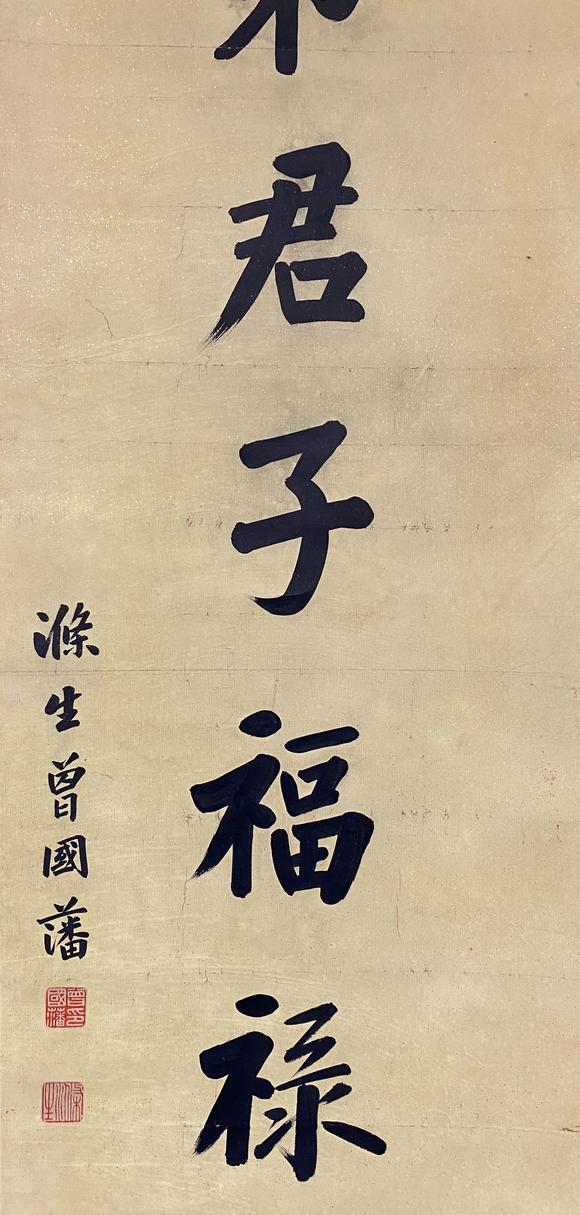 君子福祿
滌生曾國藩
曾國藩印
滌生